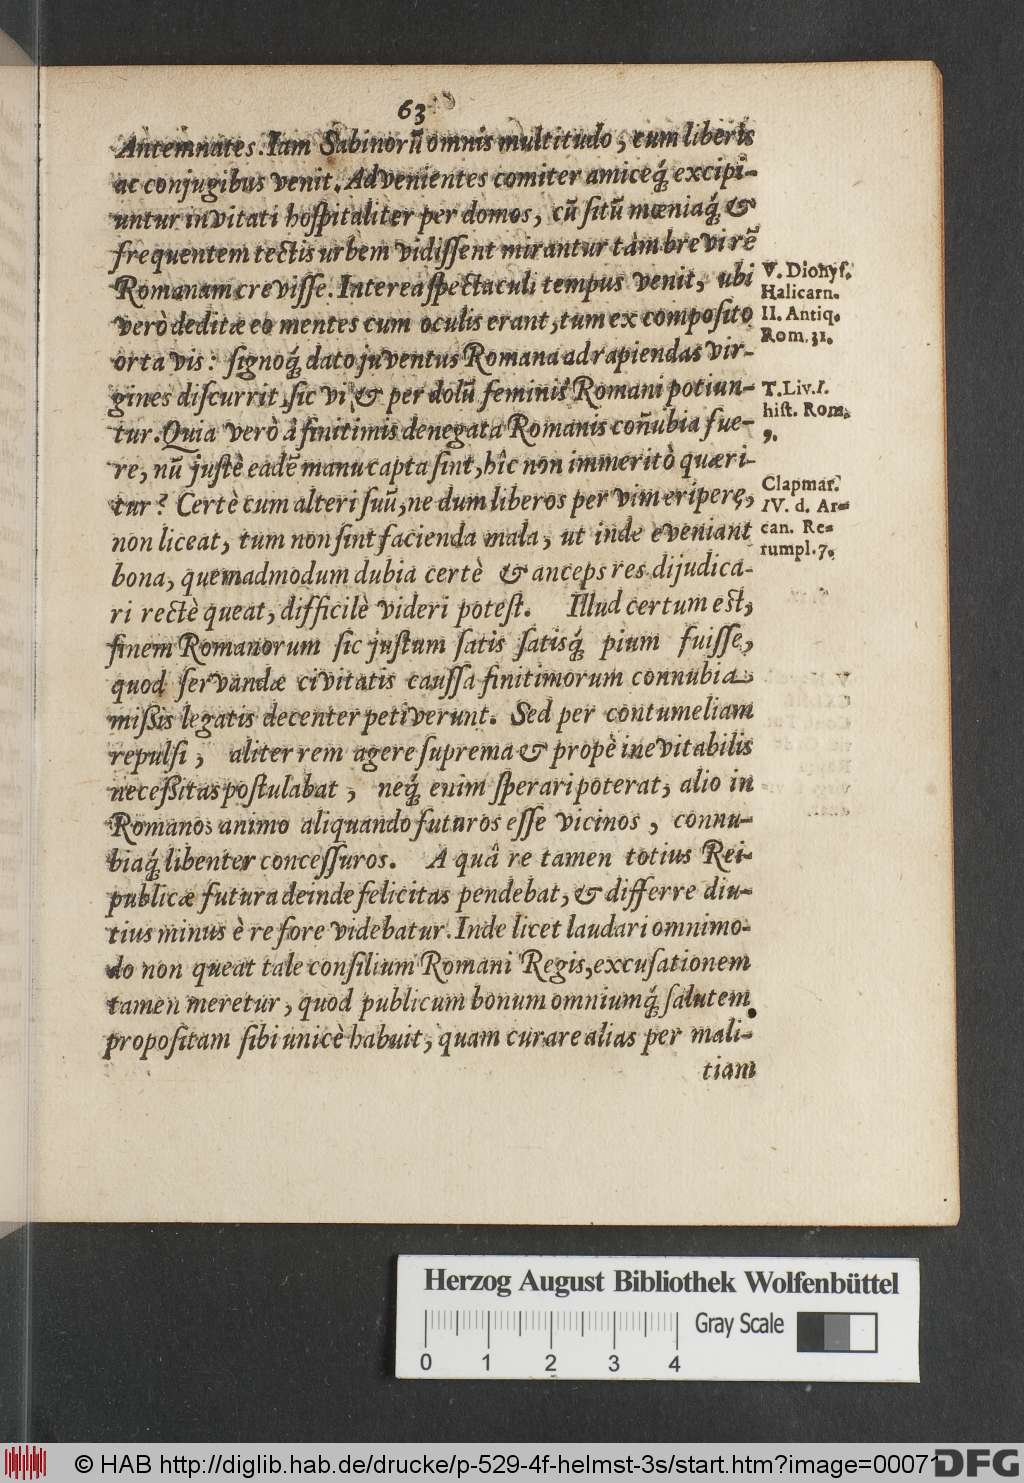 63
Antemnates. Iam Sabinorū omnis multitudo, cum liberis
ac conjugibus venit. Advenientes comiter amiceq́; excipi-
untur invitati hoſpitaliter per domos, cū ſitū mœniaq́; &
frequentem tectis urbem vidiſſent mirantur tàm brevi rē
Romanam creviſſe. Interea ſpectaculi tempus venit, ubi
verò deditæ eo mentes cum oculis erant, tum ex compoſito
orta vis: ſignoq́; dato juventus Romana ad rapiendas vir-
gines diſcurrit, ſic vi & per dolū feminis Romani potiun-
tur. Quia verò â finitimis denegata Romanis coñubia fue-
re, nū juſtè eadē manu capta ſint, hîc non immeritò quæri-
tur? Certè cum alteri ſuū, ne dum liberos per vim eripere,
non liceat, tum non ſint facienda mala, ut inde eveniant
bona, quemadmodum dubia certè & anceps res dijudica-
ri rectè queat, difficilè videri poteſt. Illud certum eſt,
finem Romanorum ſic juſtum ſatis ſatisq́; pium fuiſſe,
quod ſervandæ civitatis cauſſa finitimorum connubia
miſsis legatis decenter petiverunt. Sed per contumeliam
repulſi, aliter rem agere ſuprema & propè inevitabilis
neceſsitas poſtulabat, neq́; enim ſperari poterat, alio in
Romanos animo aliquando futuros eſſe vicinos, connu-
biaq́; libenter conceſſuros. A quâ re tamen totius Rei-
publicæ futura deinde felicitas pendebat, & differre diu-
tius minus è re fore videbatur. Inde licet laudari omnimo-
do non queat tale conſilium Romani Regis, excuſationem
tamen meretur, quod publicum bonum omniumq́; ſalutem
propoſitam ſibi unicè habuit, quam curare alias per mali-
tiam
V. Dionyſ.
Halicarn.
II. Antiq.
Rom. 31.
T. Liv. I.
hiſt. Rom.
9.
Clapmar.
IV. d. Ar-
can. Re-
rumpl. 7.
Herzog August Bibliothek Wolfenbüttel
Gray Scale
0 1 2 3 4
© HAB http://diglib.hab.de/drucke/p-529-4f-helmst-3s/start.htm?image=00071
DFG